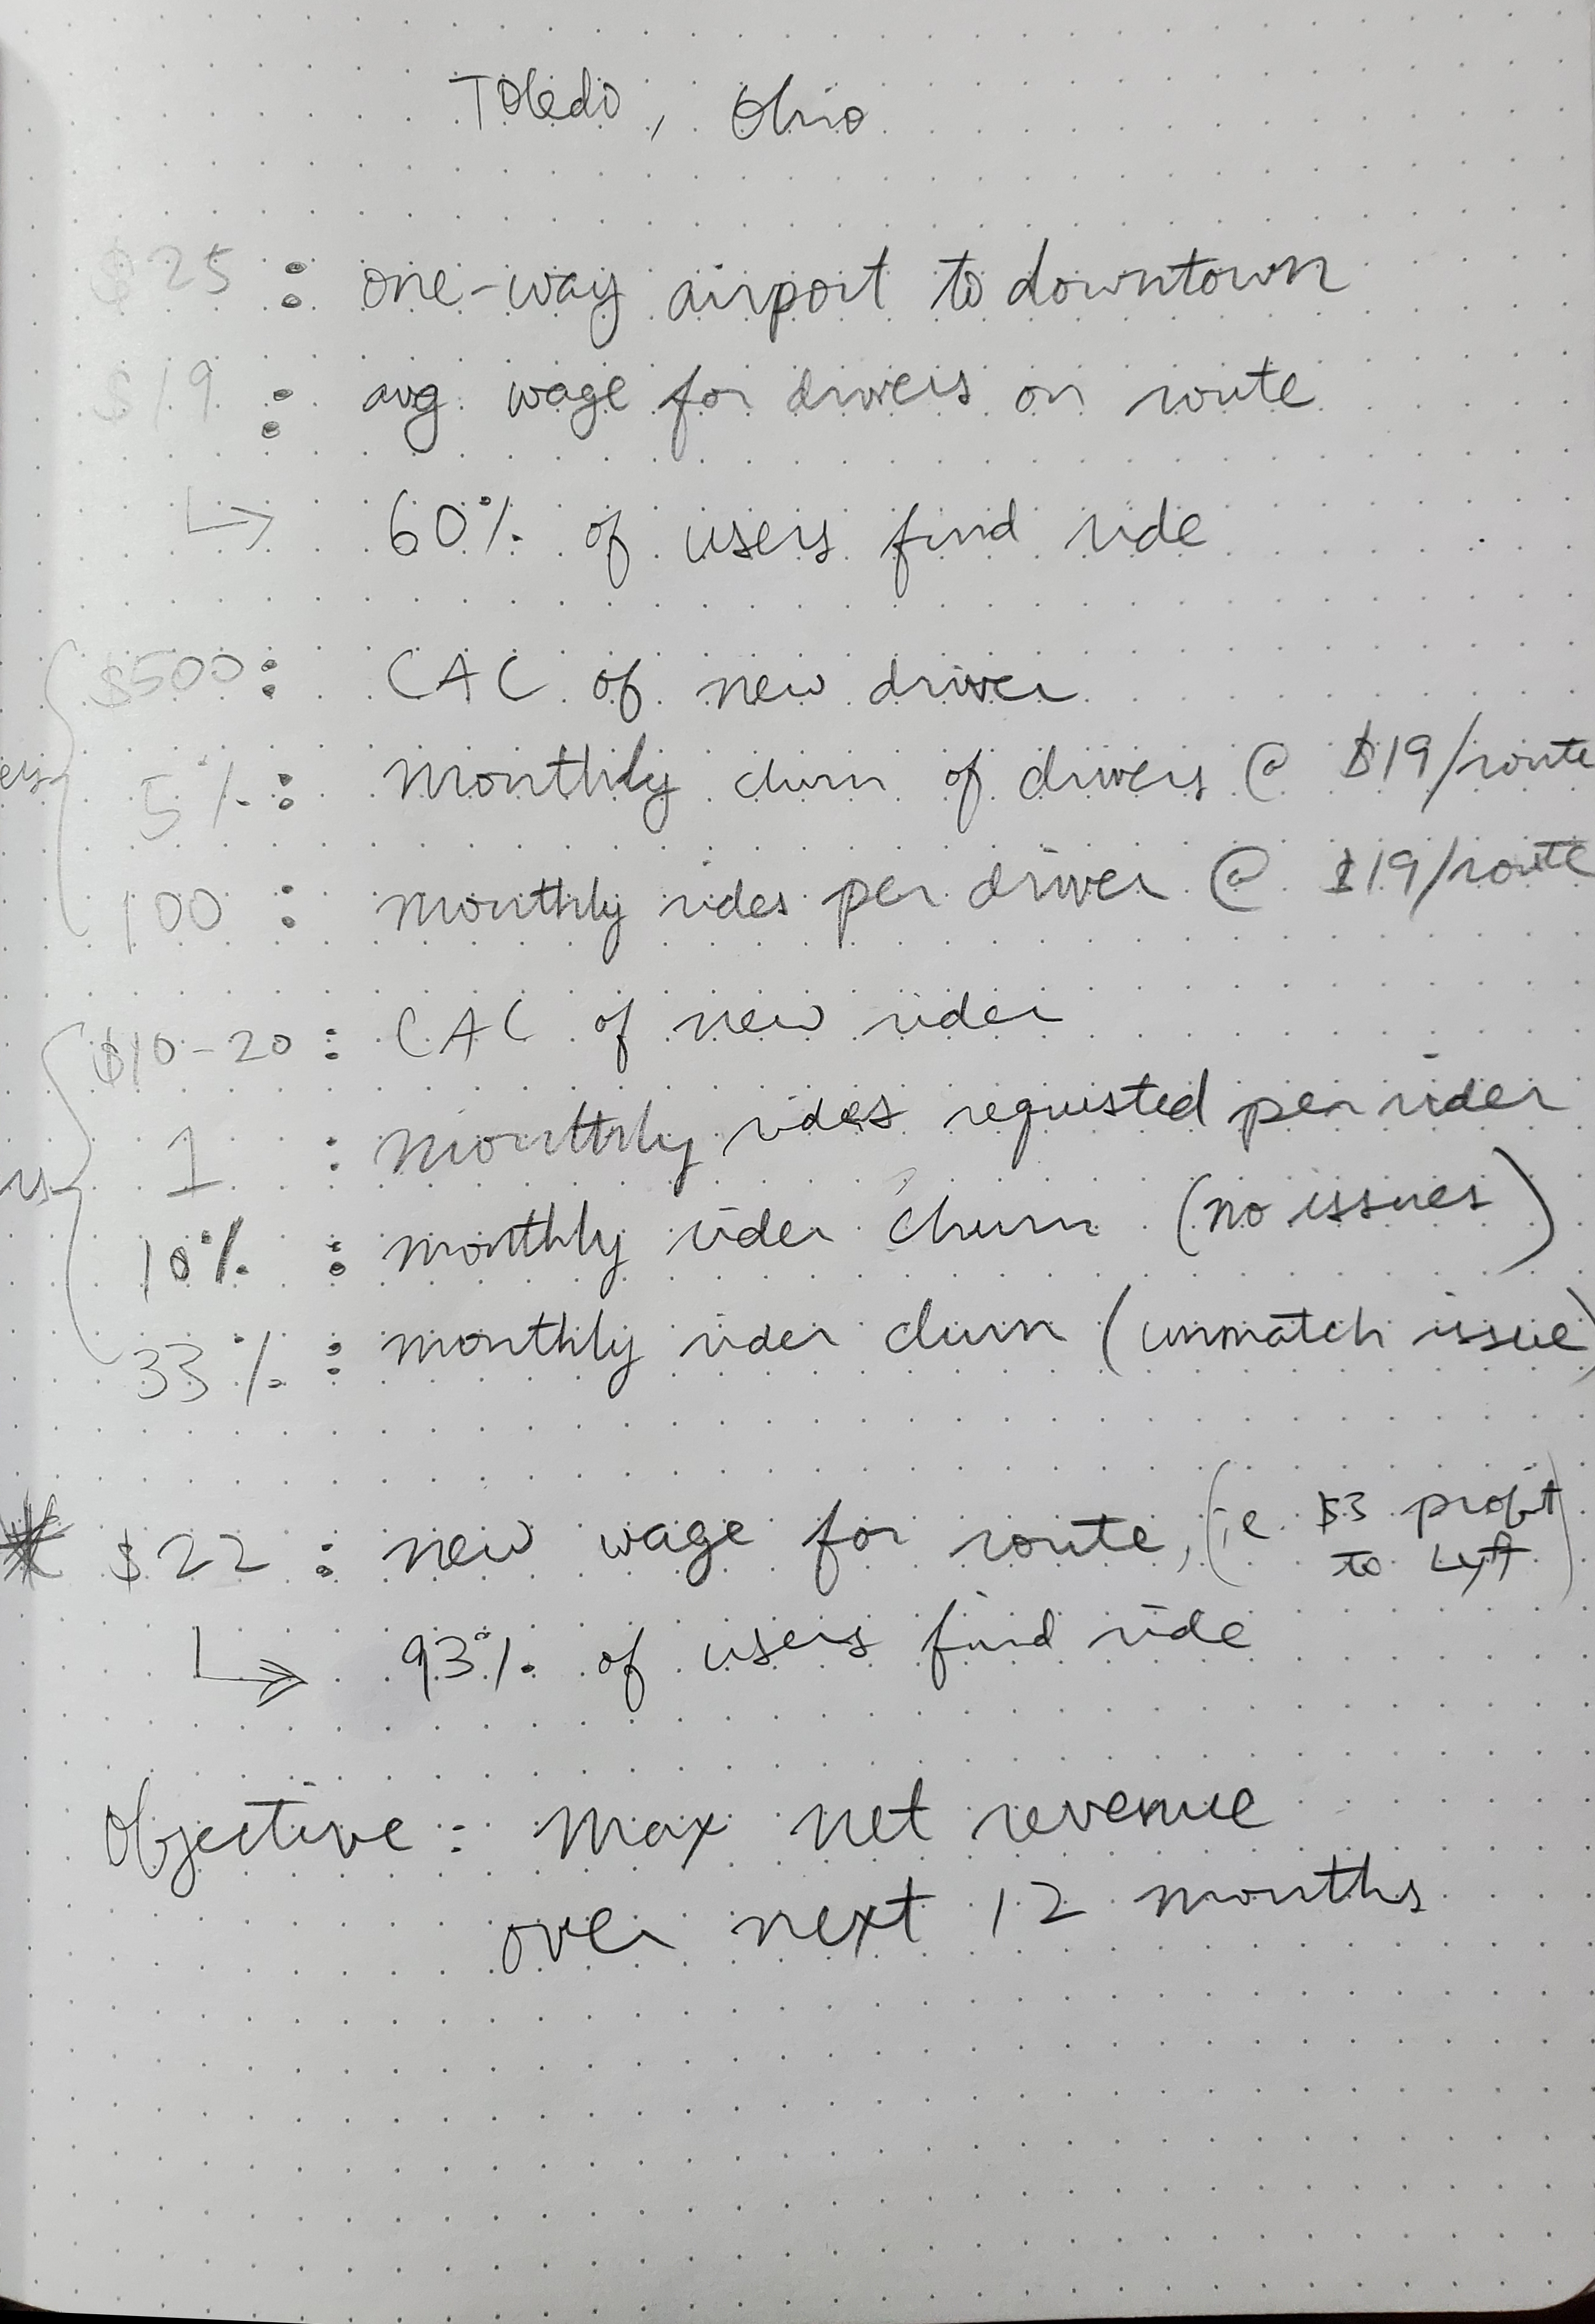 Toledo, Ohio
$25 : one-way airport to downtown
$19 : avg wage for drivers on route
↳ 60% of users find ride
$500 : CAC of new driver
5% : Monthly churn of drivers @ $19/route
100 : monthly rides per driver @ $19/route
$10-20 : CAC of new rider
1 : monthly rides requested per rider
10% : monthly rider churn (no issues)
33% : monthly rider churn (unmatch issue)
* $22 : new wage for route, (i.e. $3 profit
to Lyft)
↳ 93% of users find ride
Objective : Max net revenue
over next 12 months